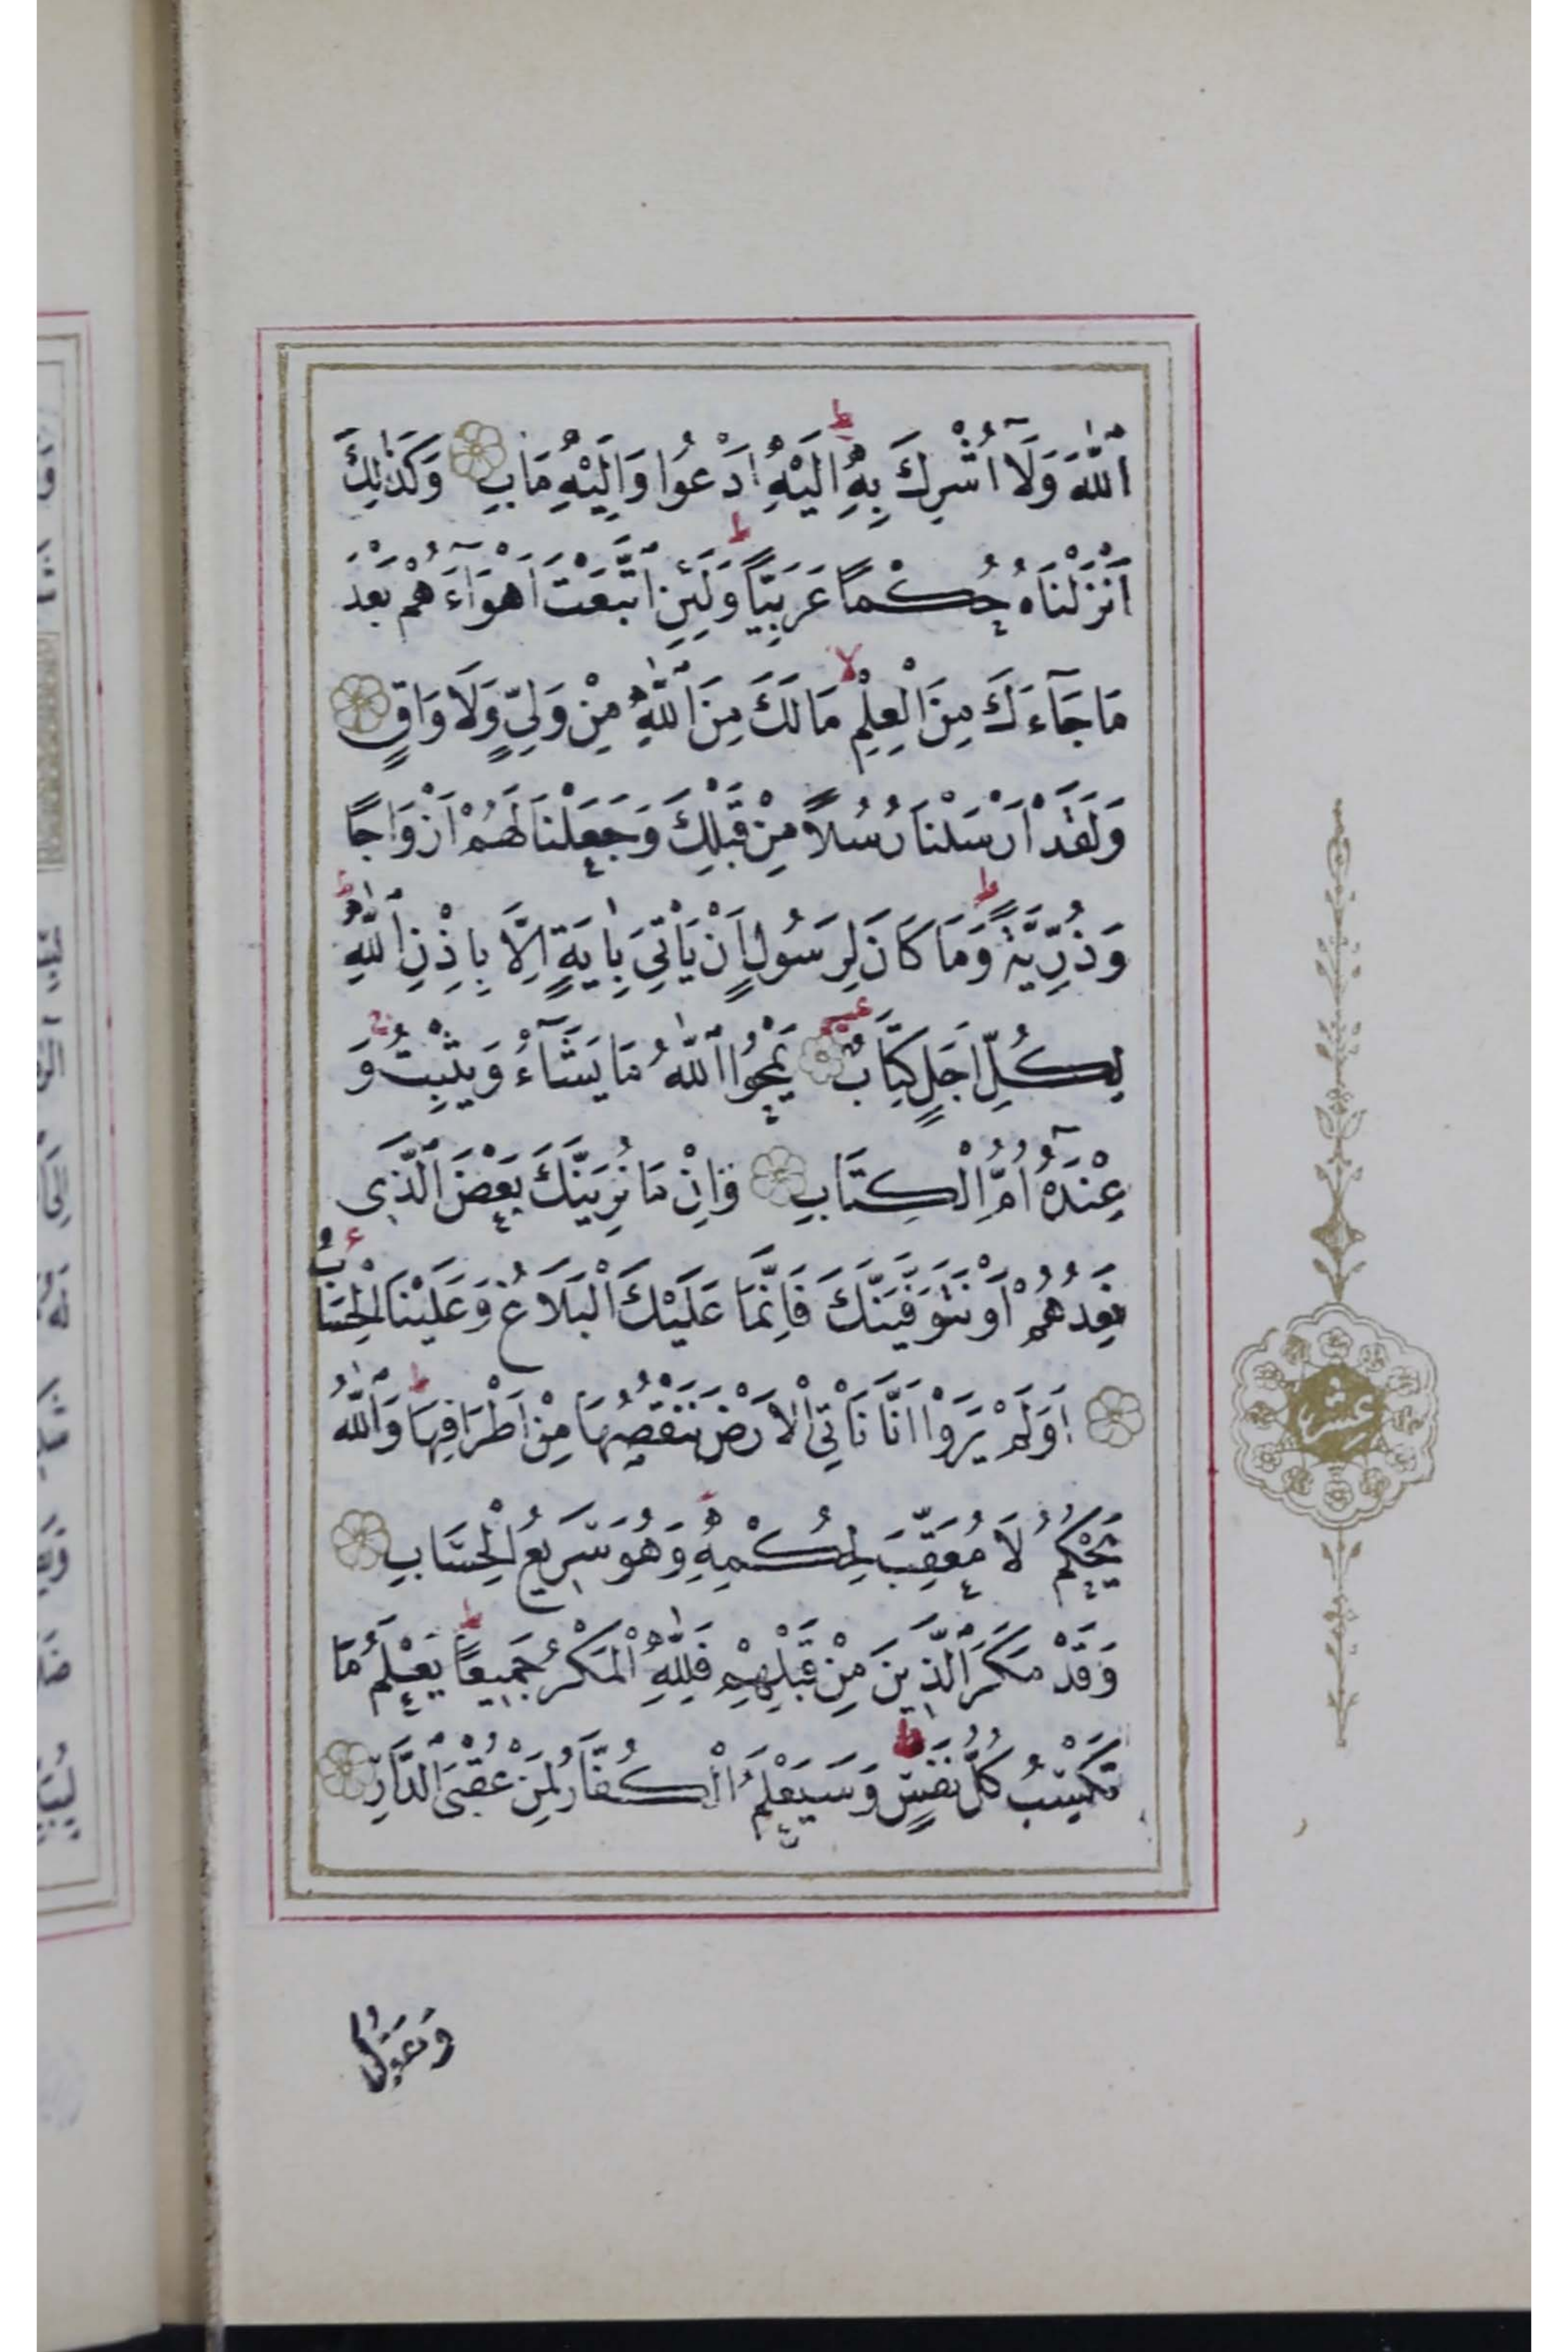 اَللّٰهَ وَلَٓا اُشْرِكَ بِهِ اِلَيْهِ اَدْعُوا وَاِلَيْهِ مَاٰبِ وَكَذٰلِكَ
اَنْزَلْنَاهُ حُكْمًا عَرَبِيًّا وَلَئِنِ اتَّبَعْتَ اَهْوَٓاءَهُمْ بَعْدَ
مَا جَٓاءَكَ مِنَ الْعِلْمِ مَا لَكَ مِنَ اللّٰهِ مِنْ وَلِيٍّ وَلَا وَاقٍ
وَلَقَدْ اَرْسَلْنَا رُسُلًا مِنْ قَبْلِكَ وَجَعَلْنَا لَهُمْ اَزْوَاجًا
وَذُرِّيَّةً وَمَا كَانَ لِرَسُولٍ اَنْ يَأْتِيَ بِاٰيَةٍ اِلَّا بِاِذْنِ اللّٰهِ
لِكُلِّ اَجَلٍ كِتَابٌ يَمْحُوا اللّٰهُ مَا يَشَٓاءُ وَيُثْبِتُ وَ
عِنْدَهُٓ اُمُّ الْكِتَابِ وَاِنْ مَا نُرِيَنَّكَ بَعْضَ الَّذِي
نَعِدُهُمْ اَوْ نَتَوَفَّيَنَّكَ فَاِنَّمَا عَلَيْكَ الْبَلَاغُ وَعَلَيْنَا الْحِسَابُ
اَوَلَمْ يَرَوْا اَنَّا نَأْتِي الْاَرْضَ نَنْقُصُهَا مِنْ اَطْرَافِهَا وَاللّٰهُ
يَحْكُمُ لَا مُعَقِّبَ لِحُكْمِهِ وَهُوَ سَرِيعُ الْحِسَابِ
وَقَدْ مَكَرَ الَّذِينَ مِنْ قَبْلِهِمْ فَلِلّٰهِ الْمَكْرُ جَمِيعًا يَعْلَمُ مَا
تَكْسِبُ كُلُّ نَفْسٍ وَسَيَعْلَمُ الْكُفَّارُ لِمَنْ عُقْبَى الدَّارِ
عشر
وَيَقُولُ